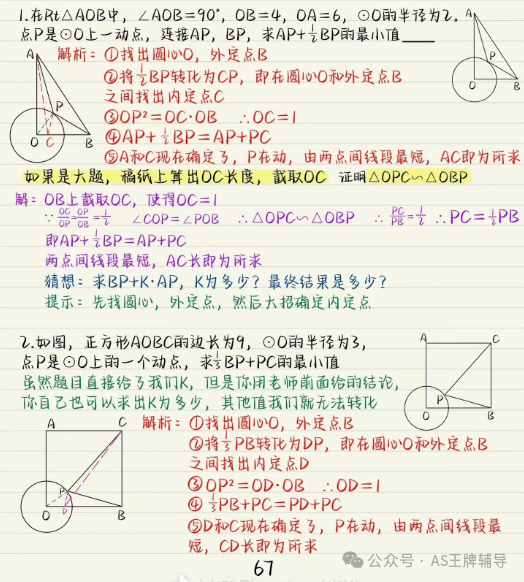 1.在Rt△AOB中，∠AOB=90°，OB=4，OA=6，⊙O的半径为2.
点P是⊙O上一动点，连接AP，BP，求AP+1/2BP的最小值____
解析：①找出圆心O，外定点B
②将1/2BP转化为CP，即在圆心O和外定点B
之间找出内定点C
③OP²=OC·OB ∴OC=1
④AP+1/2BP=AP+PC
⑤A和C现在确定了，P在动，由两点间线段最短，AC即为所求
A
P
O
C
B
A
P
O
B
如果是大题，稿纸上算出OC长度，截取OC 证明△OPC∽△OBP
解：OB上截取OC，使得OC=1
∵OC/OP=OP/OB=1/2 ∠COP=∠POB ∴△OPC∽△OBP ∴PC/PB=1/2 ∴PC=1/2PB
即AP+1/2BP=AP+PC
两点间线段最短，AC长即为所求
猜想：求BP+K·AP，K为多少？最终结果是多少？
提示：先找圆心，外定点，然后大招确定内定点
2.如图，正方形AOBC的边长为9，⊙O的半径为3，
点P是⊙O上的一个动点，求1/3BP+PC的最小值
虽然题目直接给了我们K，但是你用老师前面给的结论，
你自己也可以求出K为多少，其他值我们就无法转化
A
C
P
O
B
解析：①找出圆心O，外定点B
②将1/3PB转化为DP，即在圆心O和外定点B
之间找出内定点D
③OP²=OD·OB ∴OD=1
④1/3PB+PC=PD+PC
⑤D和C现在确定了，P在动，由两点间线段最
短，CD长即为所求
A
C
P
O
D
B
67
公众号·AS王牌辅导